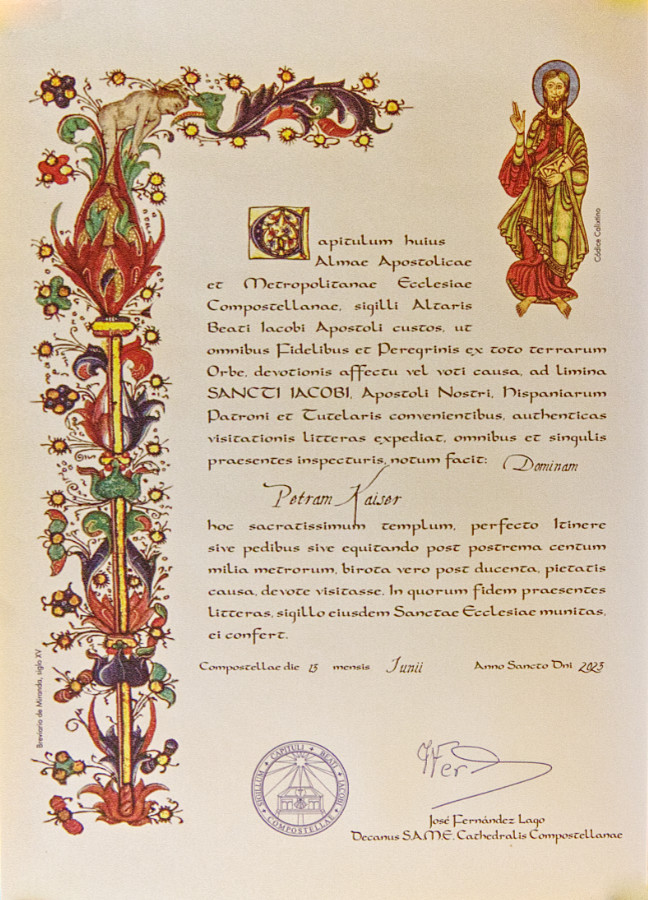 Capitulum huius
Almae Apostolicae
et Metropolitanae Ecclesiae
Compostellanae, sigilli Altaris
Beati Iacobi Apostoli custos, ut
omnibus Fidelibus et Peregrinis ex toto terrarum
Orbe, devotionis affectu vel voti causa, ad limina
SANCTI IACOBI, Apostoli Nostri, Hispaniarum
Patroni et Tutelaris convenientibus, authenticas
visitationis litteras expediat, omnibus et singulis
praesentes inspecturis, notum facit: Dominam
Petram Kaiser
hoc sacratissimum templum, perfecto Itinere
sive pedibus sive equitando post postrema centum
milia metrorum, birota vero post ducenta, pietatis
causa, devote visitasse. In quorum fidem praesentes
litteras, sigillo eiusdem Sanctae Ecclesiae munitas,
ei confert.
Compostellae die 15 mensis Junii Anno Sancto Dni 2023
Códice Calixtino
Breviario de Miranda, siglo XV
SIGILLUM CAPITULI BEATI IACOBI
COMPOSTELLAE
José Fernández Lago
Decanus S.A.M.E. Cathedralis Compostellanae